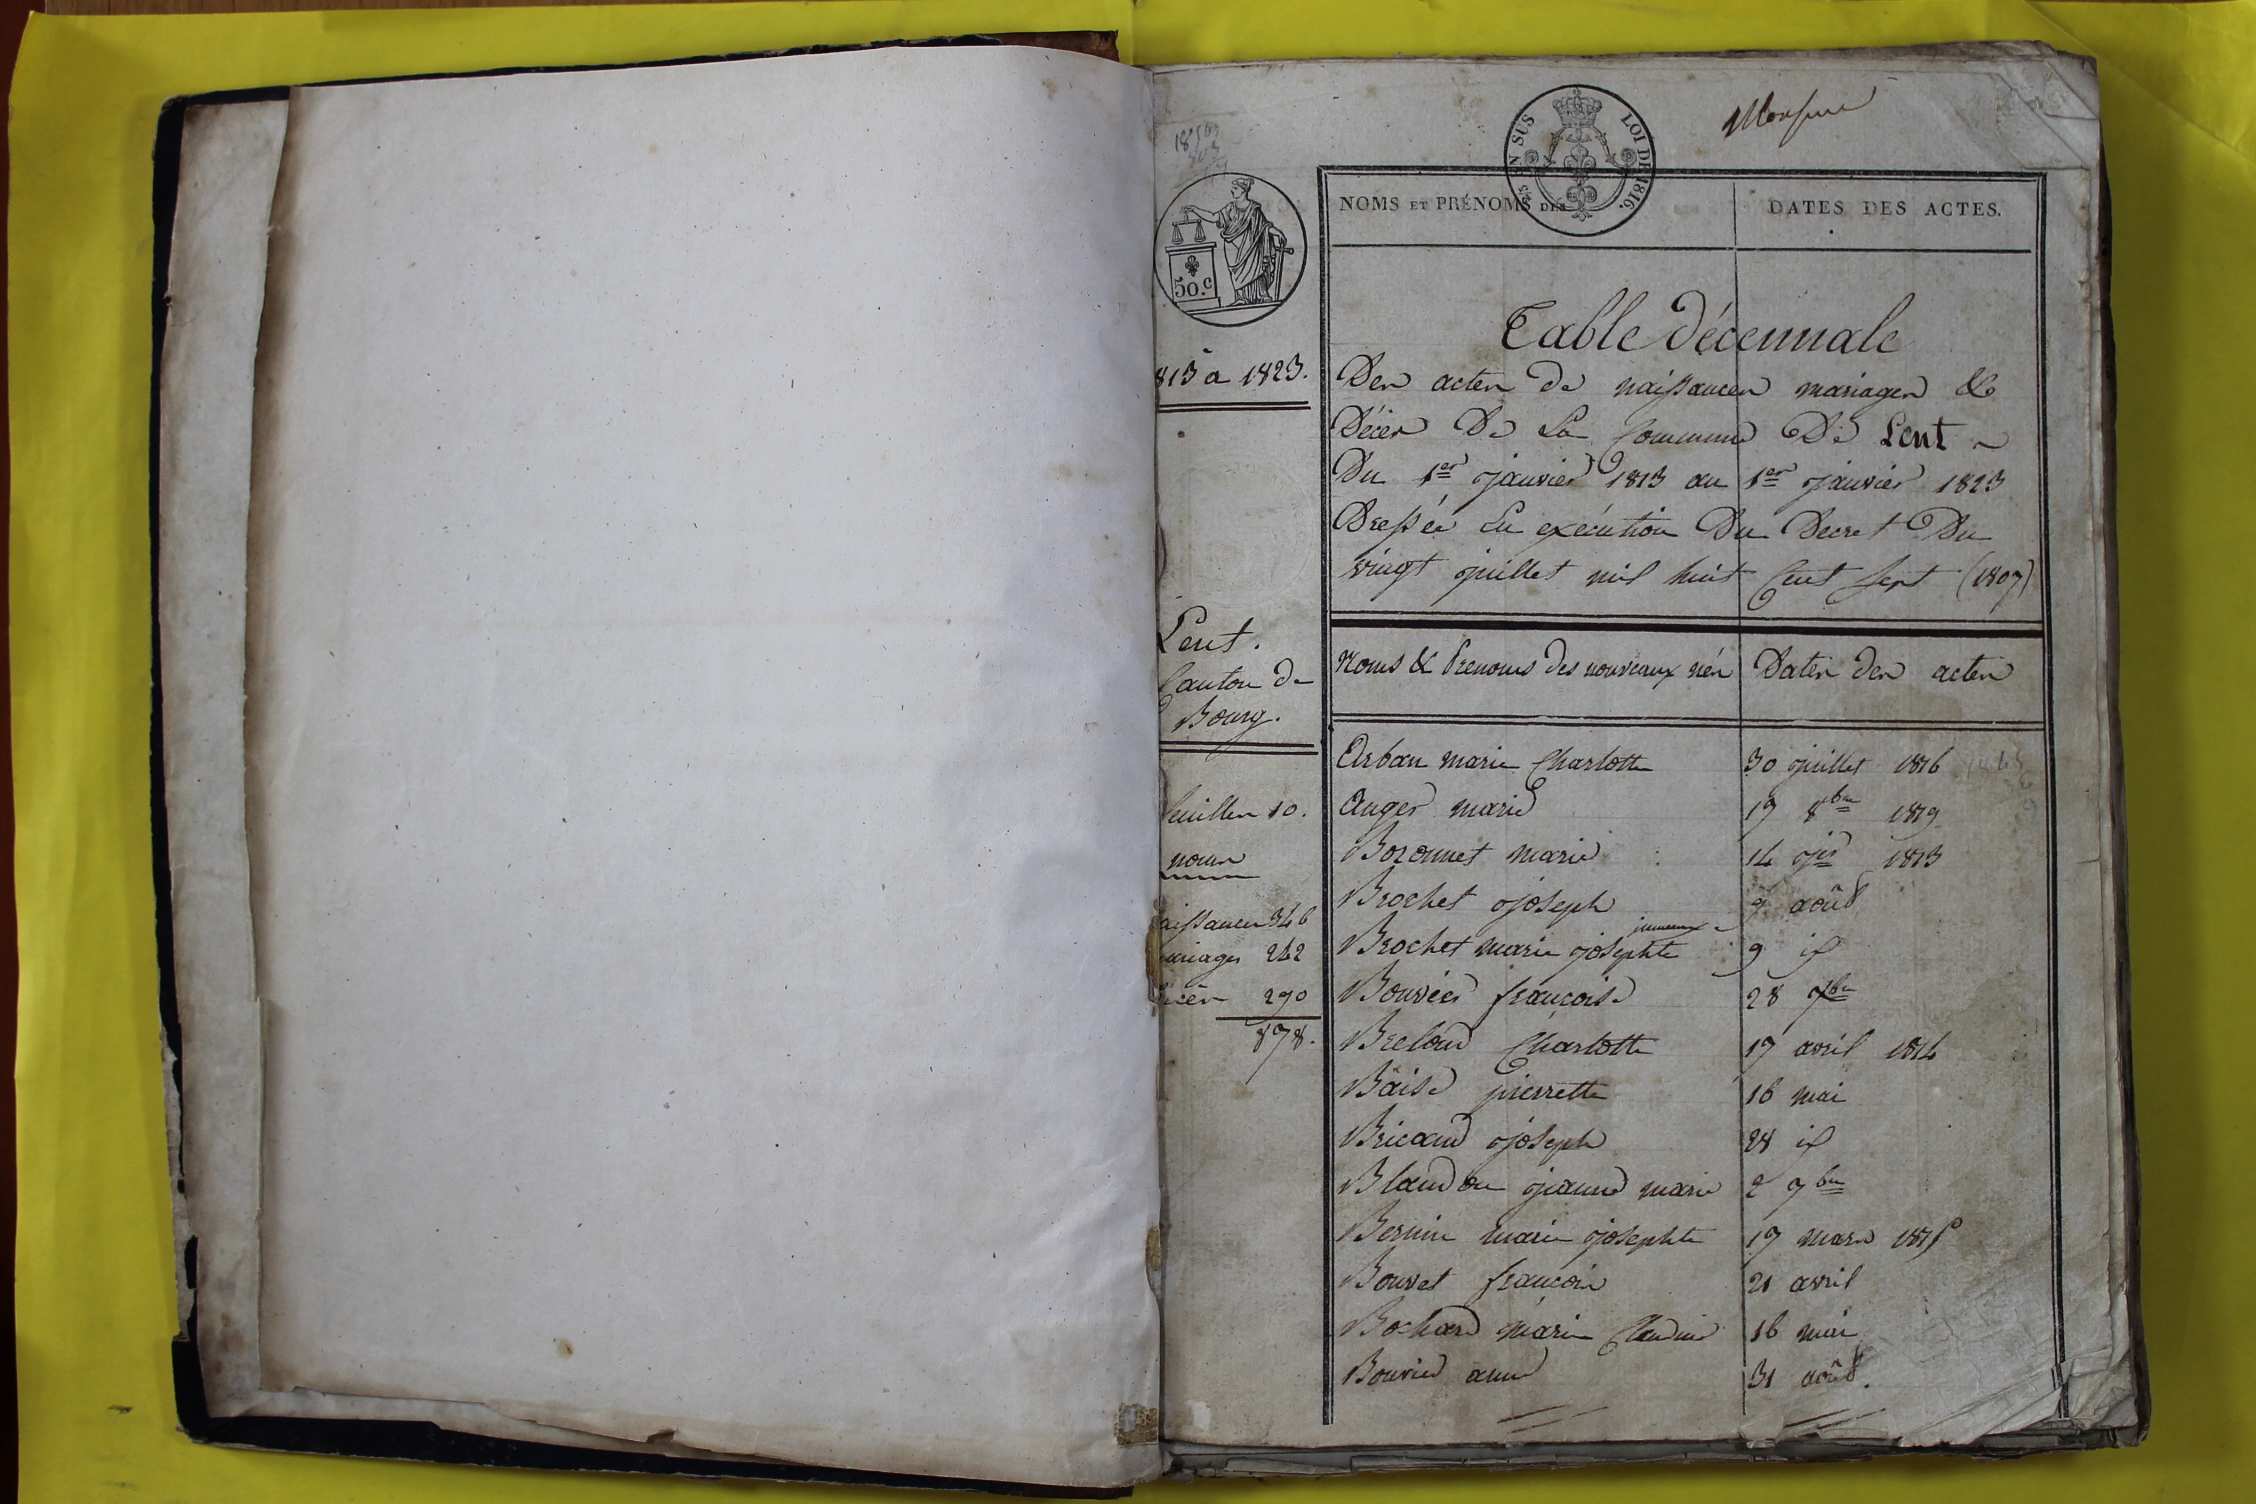 LOI DE 1816.
EN SUS
NOMS ET PRÉNOMS DES
DATES DES ACTES.
50.c
813 a 1823.
Lent.
Canton de
Bourg.
feuilles 10.
noms
aissances 346
mariages 242
290
878.
Table décennale
Des actes de naissances mariages &
Décès De La Commune De Lent
Du 1er janvier 1813 au 1er janvier 1823
Dressée En exécution Du Decret Du
vingt juillet mil huit Cent Sept (1807)
Noms & Prenoms des nouveaux nés
Dates des actes
Arban marie Charlotte 30 juillet 1816
Auger marie 17 8bre 1819
Bozonnet marie 14 1813
Brochet joseph 9 août
jumeaux
Brochet marie josephte 9 id
Bouvier françoise 28 7bre
Breloud Charlotte 17 avril 1814
Baise pierrette 16 mai
Bricaud joseph 28 id
Blandon jeanne marie 2 7bre
Bernin marie josephte 17 mars 1815
Bouvet françois 21 avril
Bochard marie Claudine 16 mai
Bouvier anne 31 août.